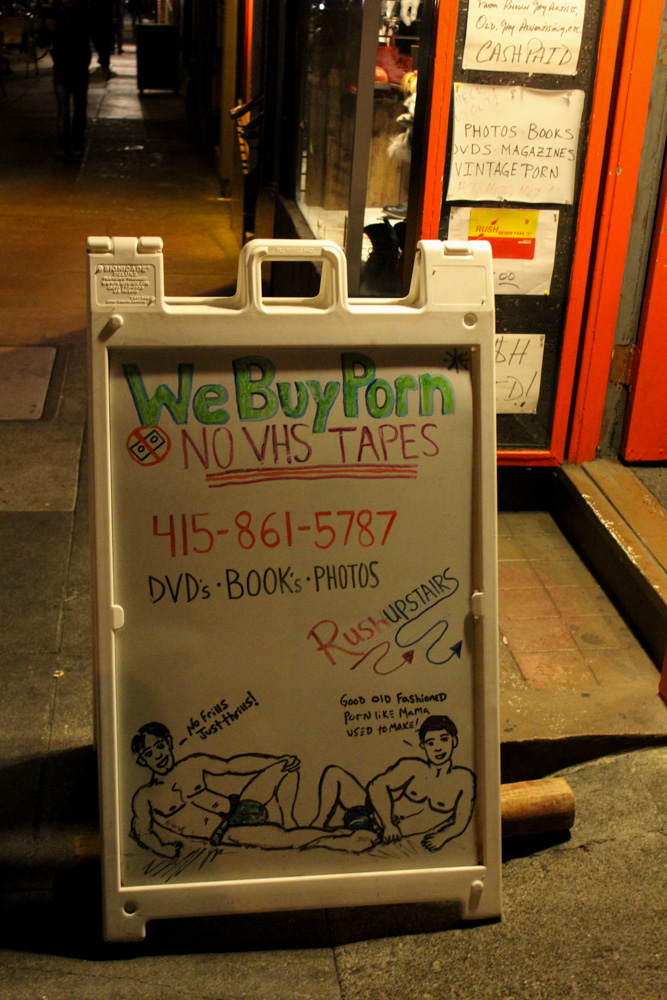 From Known Gay Artist,
Old, Gay Advertising, etc
CASH PAID
PHOTOS BOOKS
DVDS MAGAZINES
VINTAGE PORN
RUSH
NEVER FAKE IT!
00
$H
D!
SIGNICADE
We Buy Porn
NO VHS TAPES
415-861-5787
DVD's · BOOK's · PHOTOS
Rush UPSTAIRS
No Frills
Just thrills!
GOOD OLD FASHIONED
PORN LIKE MAMA
USED to MAKE!